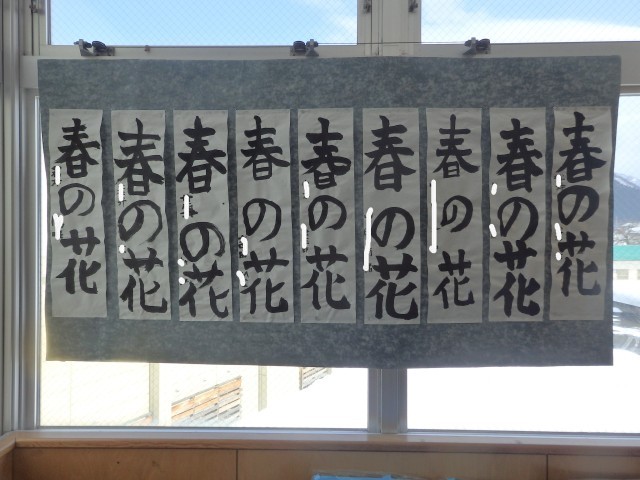 春の花
春の花
春の花
春の花
春の花
春の花
春の花
春の花
春の花